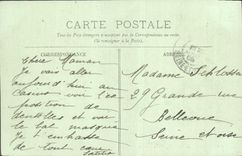 CARTE POSTALE
Tous les Pays étrangers n'acceptent pas la Correspondance au recto.
(Se renseigner à la Poste).
Chère Maman
Je vais aller
aujourd'hui au
casino voir l'ex
position de
dentelles et voir
le bal masqué
Je t'embrasse
de tout cœur
Madame
29 Grande rue
Bellevue
Seine et oise